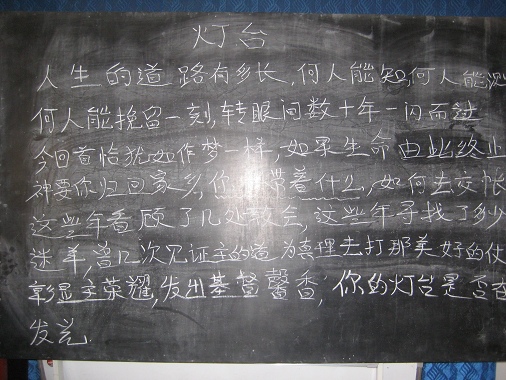 灯台
人生的道路有多长,何人能知,何人能测
何人能挽留一刻,转眼间数十年一闪而过
今回首恰犹如作梦一样,如果生命由此终止
神要你归回家乡,你带着什么,如何去交帐
这些年看顾了几处教会,这些年寻找了多少
迷羊,曾几次见证主的道为真理去打那美好的仗
彰显主荣耀,发出基督馨香,你的灯台是否在
发光